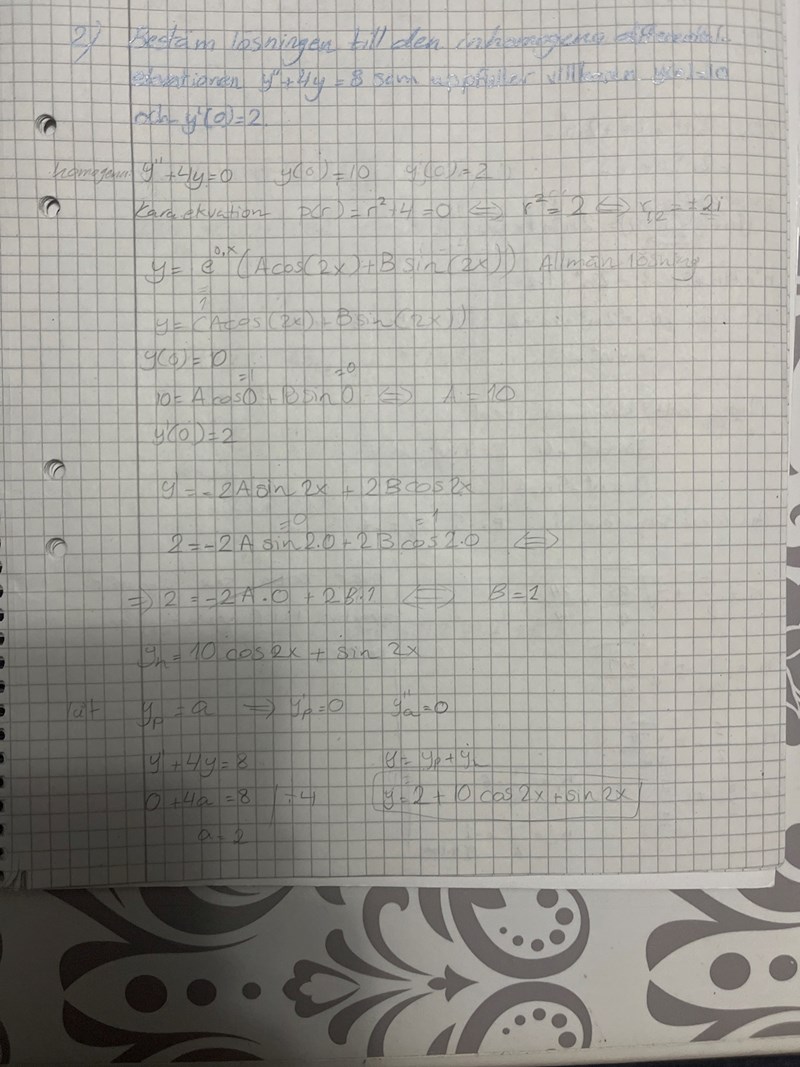 2) Bestäm lösningen till den inhomogena differential
ekvationen y"+4y=8 som uppfyller villkoren y(0)=10
och y'(0)=2.
homogen: y"+4y=0 y(0)=10 y'(0)=2
Kara ekvation p(r)=r²+4=0 ⇔ r²=2 ⇔ r₁,₂=±2i
y= e^{0·x}(Acos(2x)+B sin(2x)) Allmän lösning
1
y=(Acos(2x)+Bsin(2x))
y(0)=0
=1 =0
10=Acos0+Bsin0 ⇔ A=10
y'(0)=2
y'=-2Asin2x+2Bcos2x
=0 =1
2=-2A sin2·0+2B cos2·0 ⇔
⇒ 2=-2A·0+2B·1 ⇔ B=1
yₕ=10 cos2x+sin 2x
yₚ=a ⇒ y'ₚ=0 y"ₐ=0
y"+4y=8 y=yₚ+yₕ
0+4a=8 /÷4 y=2+10cos2x+sin2x
a=2